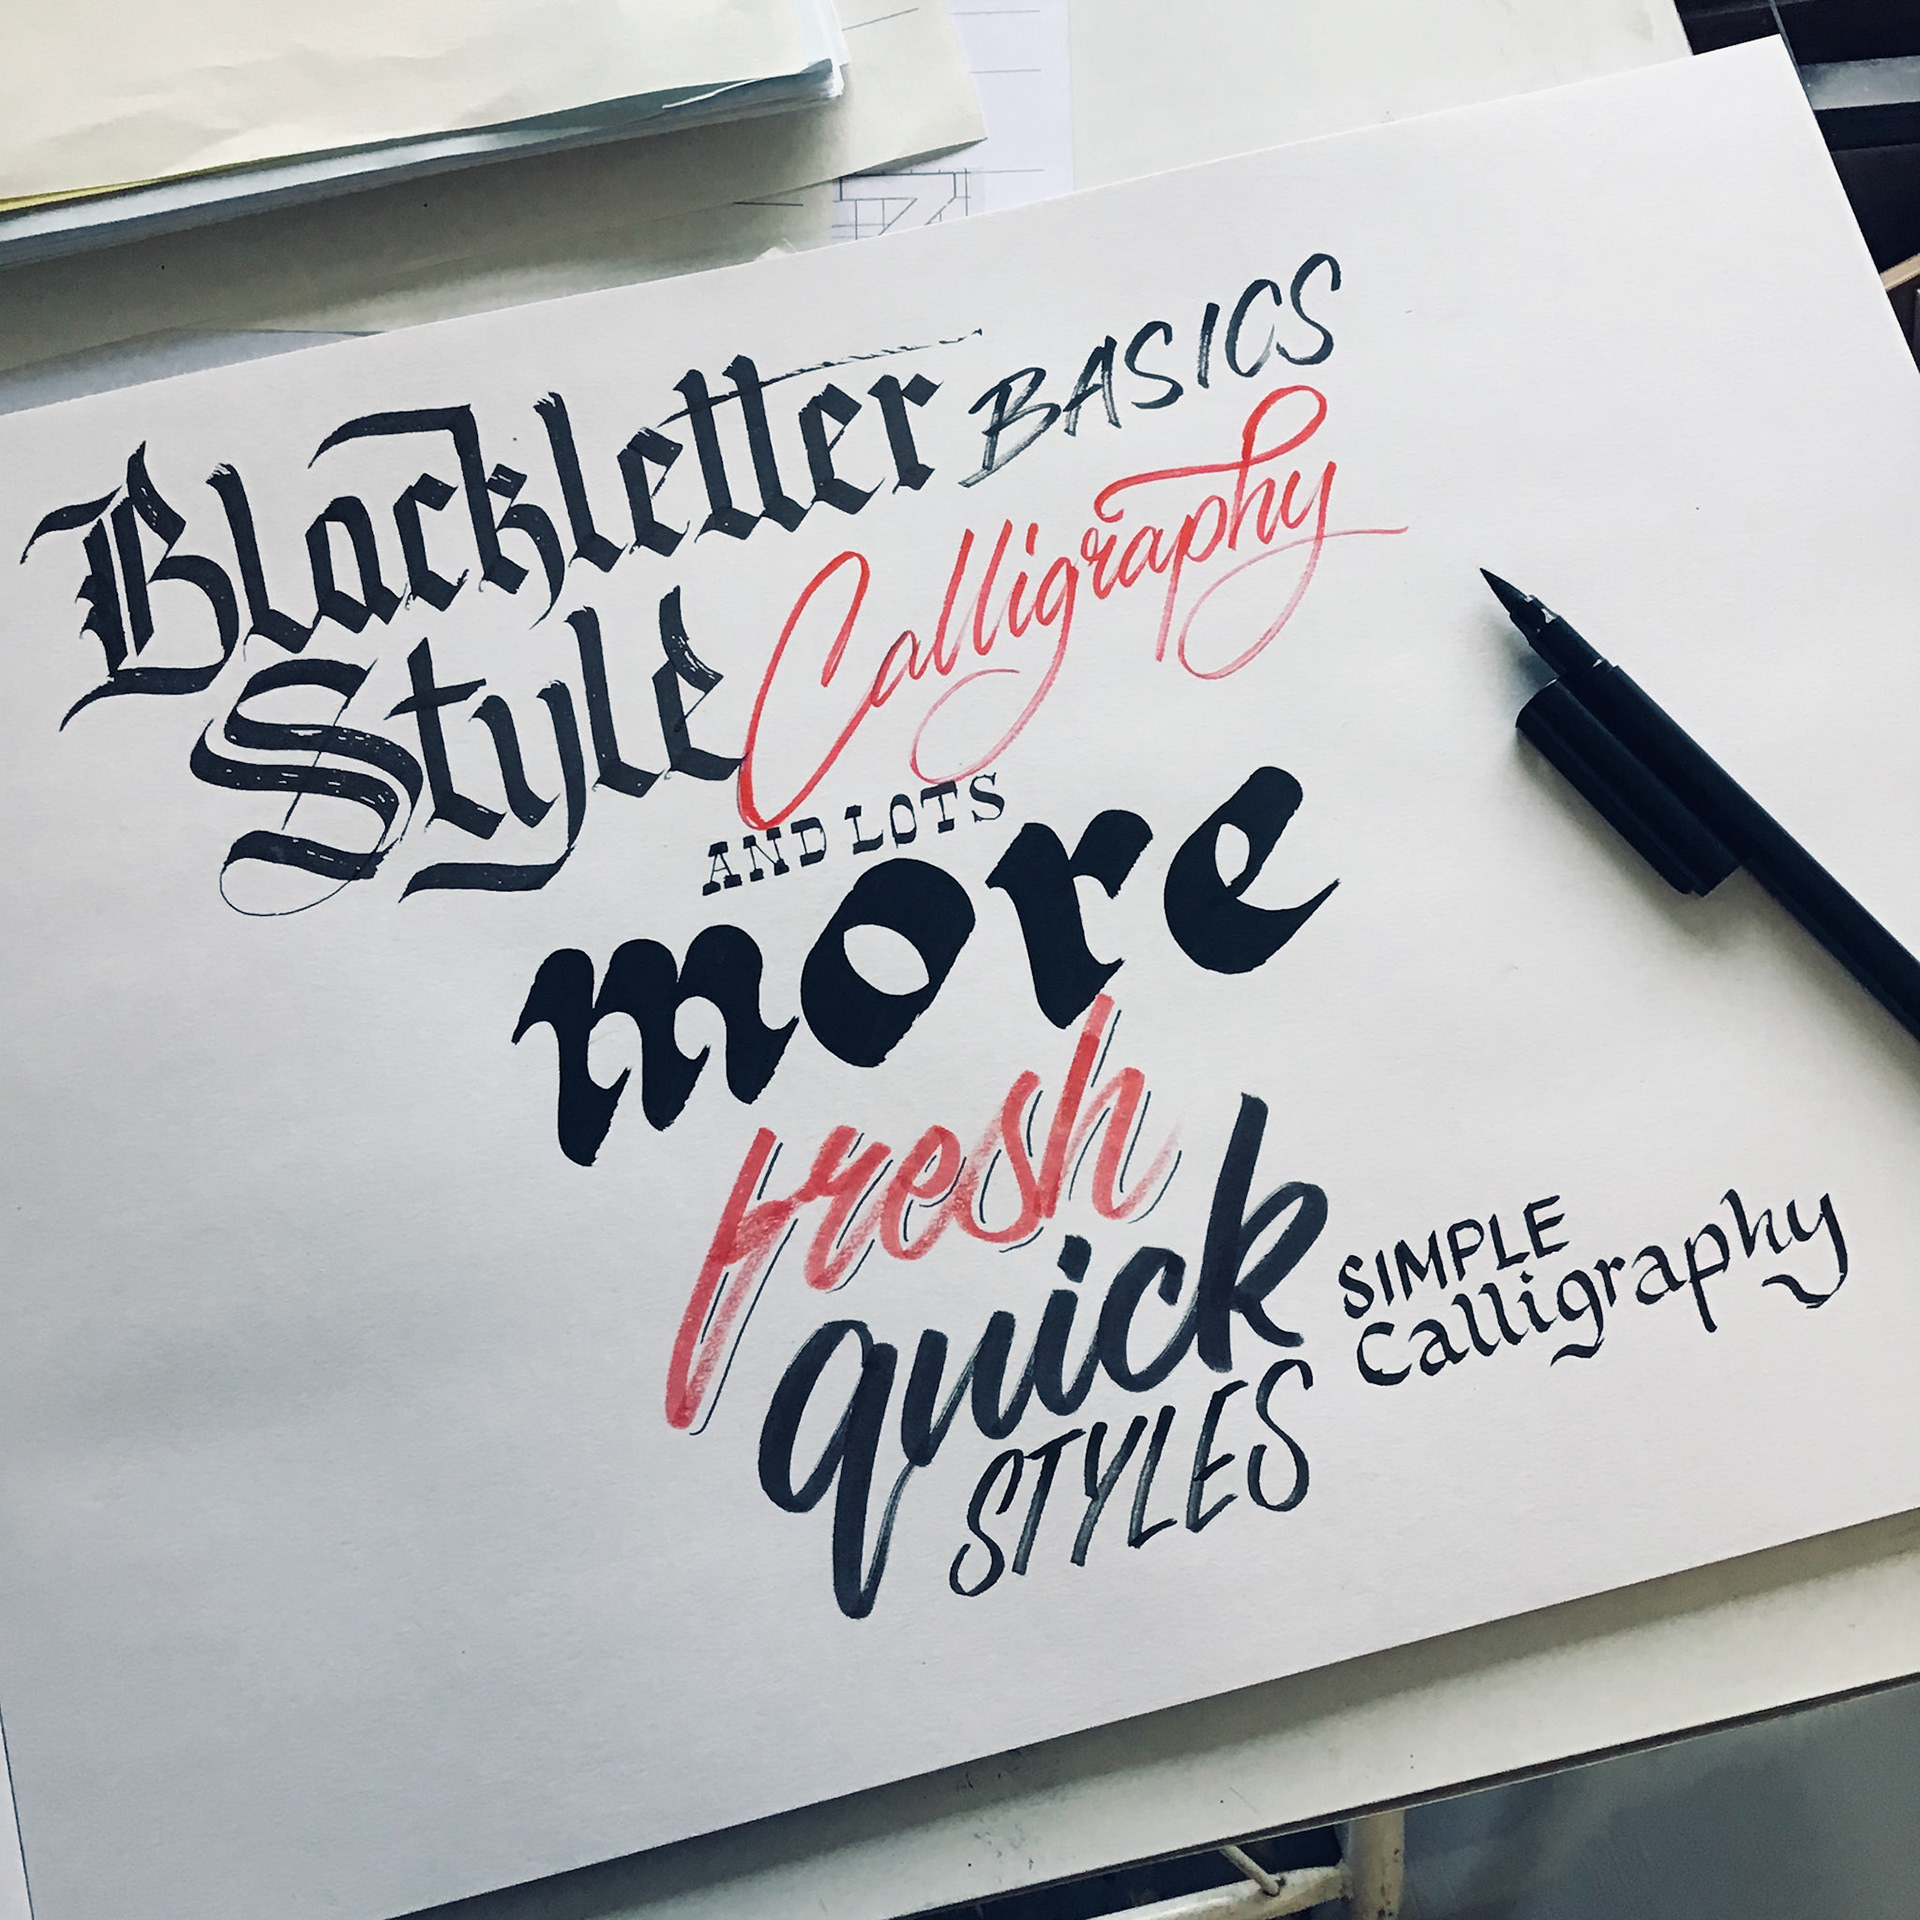 Blackletter BASICS
Style Calligraphy
AND LOTS
more
fresh
quick
STYLES
SIMPLE
Calligraphy